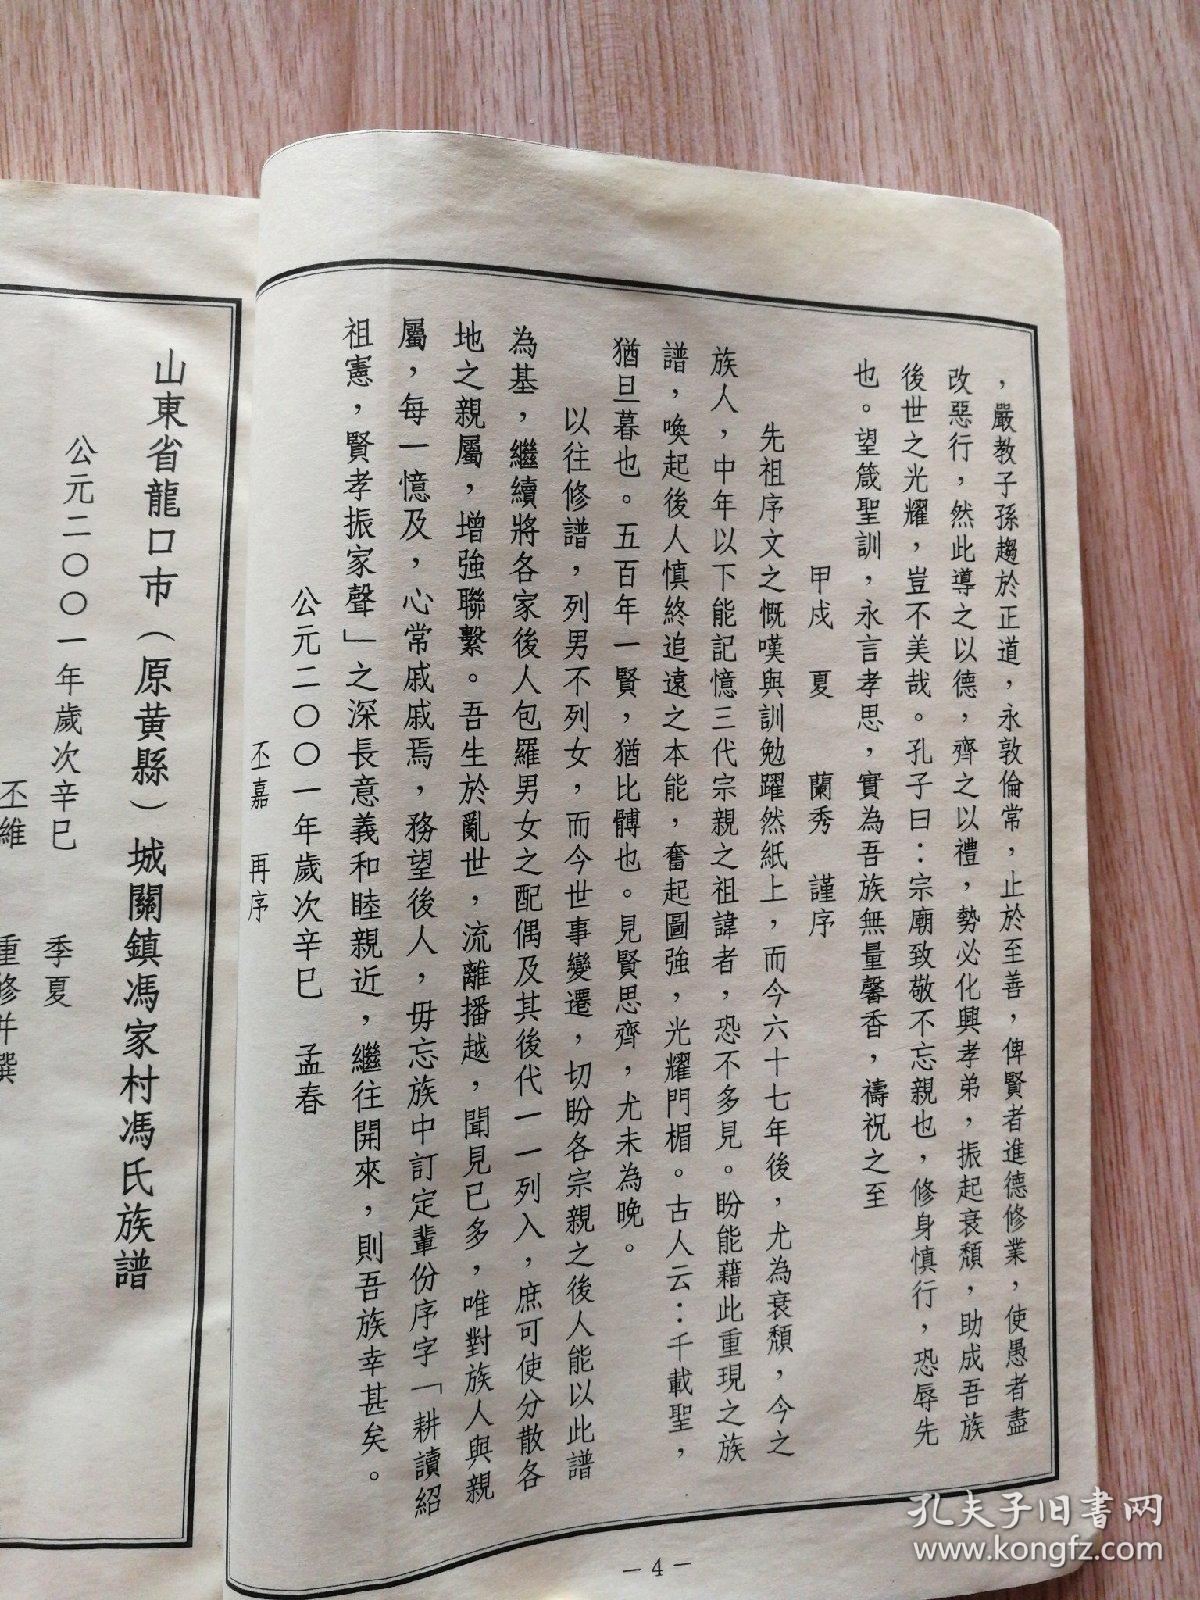 ，嚴教子孫趨於正道，永敦倫常，止於至善，俾賢者進德修業，使愚者盡
改惡行，然此導之以德，齊之以禮，勢必化興孝弟，振起衰頹，助成吾族
後世之光耀，豈不美哉。孔子曰：宗廟致敬不忘親也，修身慎行，恐辱先
也。望箴聖訓，永言孝思，實為吾族無量馨香，禱祝之至
甲戍　夏　蘭秀　謹序
先祖序文之慨嘆與訓勉躍然紙上，而今六十七年後，尤為衰頹，今之
族人，中年以下能記憶三代宗親之祖諱者，恐不多見。盼能藉此重現之族
譜，喚起後人慎終追遠之本能，奮起圖強，光耀門楣。古人云：千載聖，
猶旦暮也。五百年一賢，猶比髆也。見賢思齊，尤未為晚。
以往修譜，列男不列女，而今世事變遷，切盼各宗親之後人能以此譜
為基，繼續將各家後人包羅男女之配偶及其後代一一列入，庶可使分散各
地之親屬，增強聯繫。吾生於亂世，流離播越，聞見已多，唯對族人與親
屬，每一憶及，心常戚戚焉，務望後人，毋忘族中訂定輩份序字「耕讀紹
祖憲，賢孝振家聲」之深長意義和睦親近，繼往開來，則吾族幸甚矣。
公元二〇〇一年歲次辛巳　孟春
丕嘉　再序
山東省龍口市（原黃縣）城關鎮馮家村馮氏族譜
公元二〇〇一年歲次辛巳　季夏
丕維　重修并撰
－4－
孔夫子旧书网
www.kongfz.com